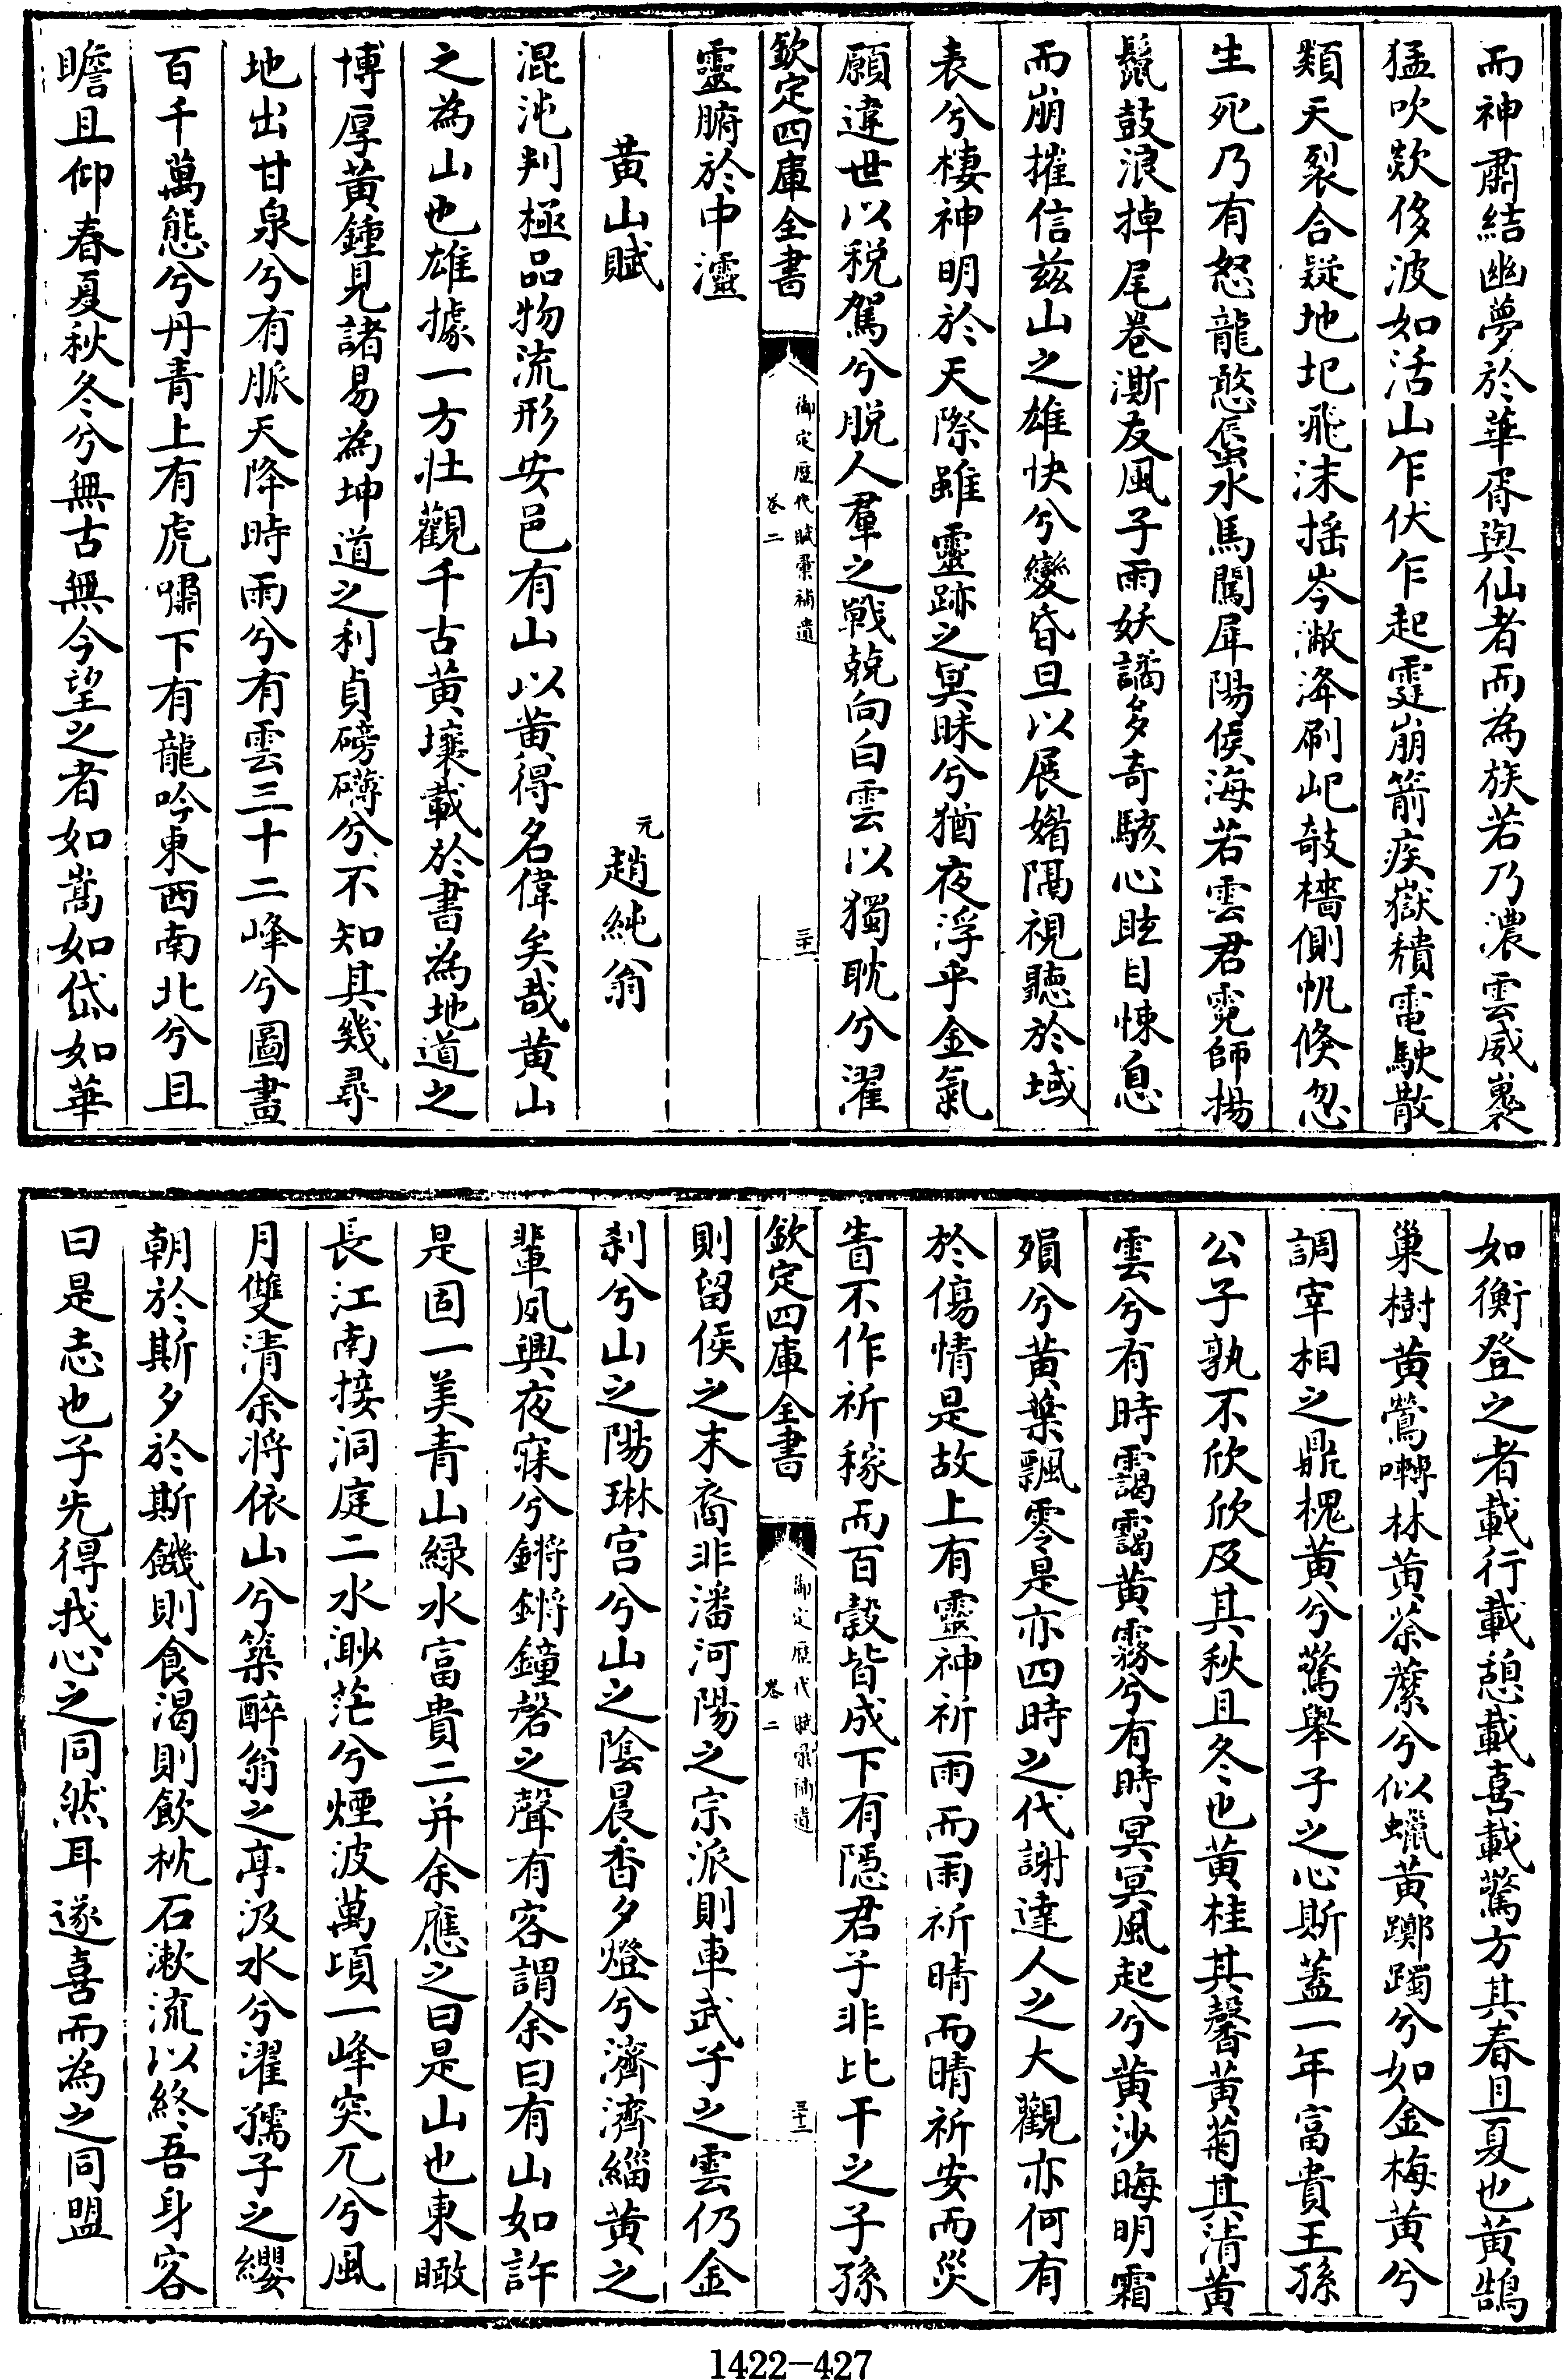 而神肅結幽夢於華胥與仙者而為族若乃濃雲威裊
猛吹欻侈波如活山乍伏乍起霆崩箭疾嶽積電駛散
類天裂合疑地圮飛沫揺岑澉洚刷屺敧檣側帆倐忽
生死乃有怒龍憨蜃水馬闖犀陽侯海若雲君霓師揚
鬛鼓浪掉尾巻澌友風子雨妖譎多竒駭心眩目悚息
而崩摧信兹山之雄快兮變昏旦以展㜝隔視聽於域
表兮棲神明於天際雖靈跡之冥昧兮猶夜浮乎金氣
願違世以税駕兮脱人羣之戰兢向白雲以獨耽兮濯
欽定四庫全書
御定歴代賦彙補遺
巻二
三十一
靈腑於中𤅷
黄山賦
元趙純翁
混沌判極品物流形安邑有山以黄得名偉矣哉黄山
之為山也雄據一方壮觀千古黄壤載於書為地道之
博厚黄鍾見諸易為坤道之利貞磅礴兮不知其幾尋
地出甘泉兮有脈天降時雨兮有雲三十二峰兮圖畫
百千萬態兮丹青上有虎嘯下有龍吟東西南北兮且
瞻且仰春夏秋冬兮無古無今望之者如嵩如岱如華
如衡登之者載行載憩載喜載驚方其春且夏也黄鵠
巢樹黄鶯囀林黄荼䕷兮似蠟黄躑躅兮如金梅黄兮
調宰相之鼎槐黄兮驚舉子之心斯蓋一年富貴王孫
公子孰不欣欣及其秋且冬也黄桂其馨黄菊其清黄
雲兮有時靄靄黄霧兮有時冥冥風起兮黄沙晦明霜
殞兮黄葉飄零是亦四時之代謝達人之大觀亦何有
於傷情是故上有靈神祈雨而雨祈晴而晴祈安而災
眚不作祈稼而百榖皆成下有隱君子非比干之子孫
欽定四庫全書
御定歴代賦彙補遺
巻二
三十二
則留侯之末裔非潘河陽之宗派則車武子之雲仍金
刹兮山之陽琳宫兮山之隂晨香夕燈兮濟濟緇黄之
輩夙興夜寐兮鏘鏘鐘磬之聲有客謂余曰有山如許
是固一美青山緑水富貴二并余應之曰是山也東瞰
長江南接洞庭二水渺茫兮煙波萬頃一峰突兀兮風
月雙清余将依山兮築醉翁之亭汲水兮濯孺子之纓
朝於斯夕於斯饑則食渴則飲枕石漱流以終吾身客
曰是志也子先得我心之同然耳遂喜而為之同盟
1422—427